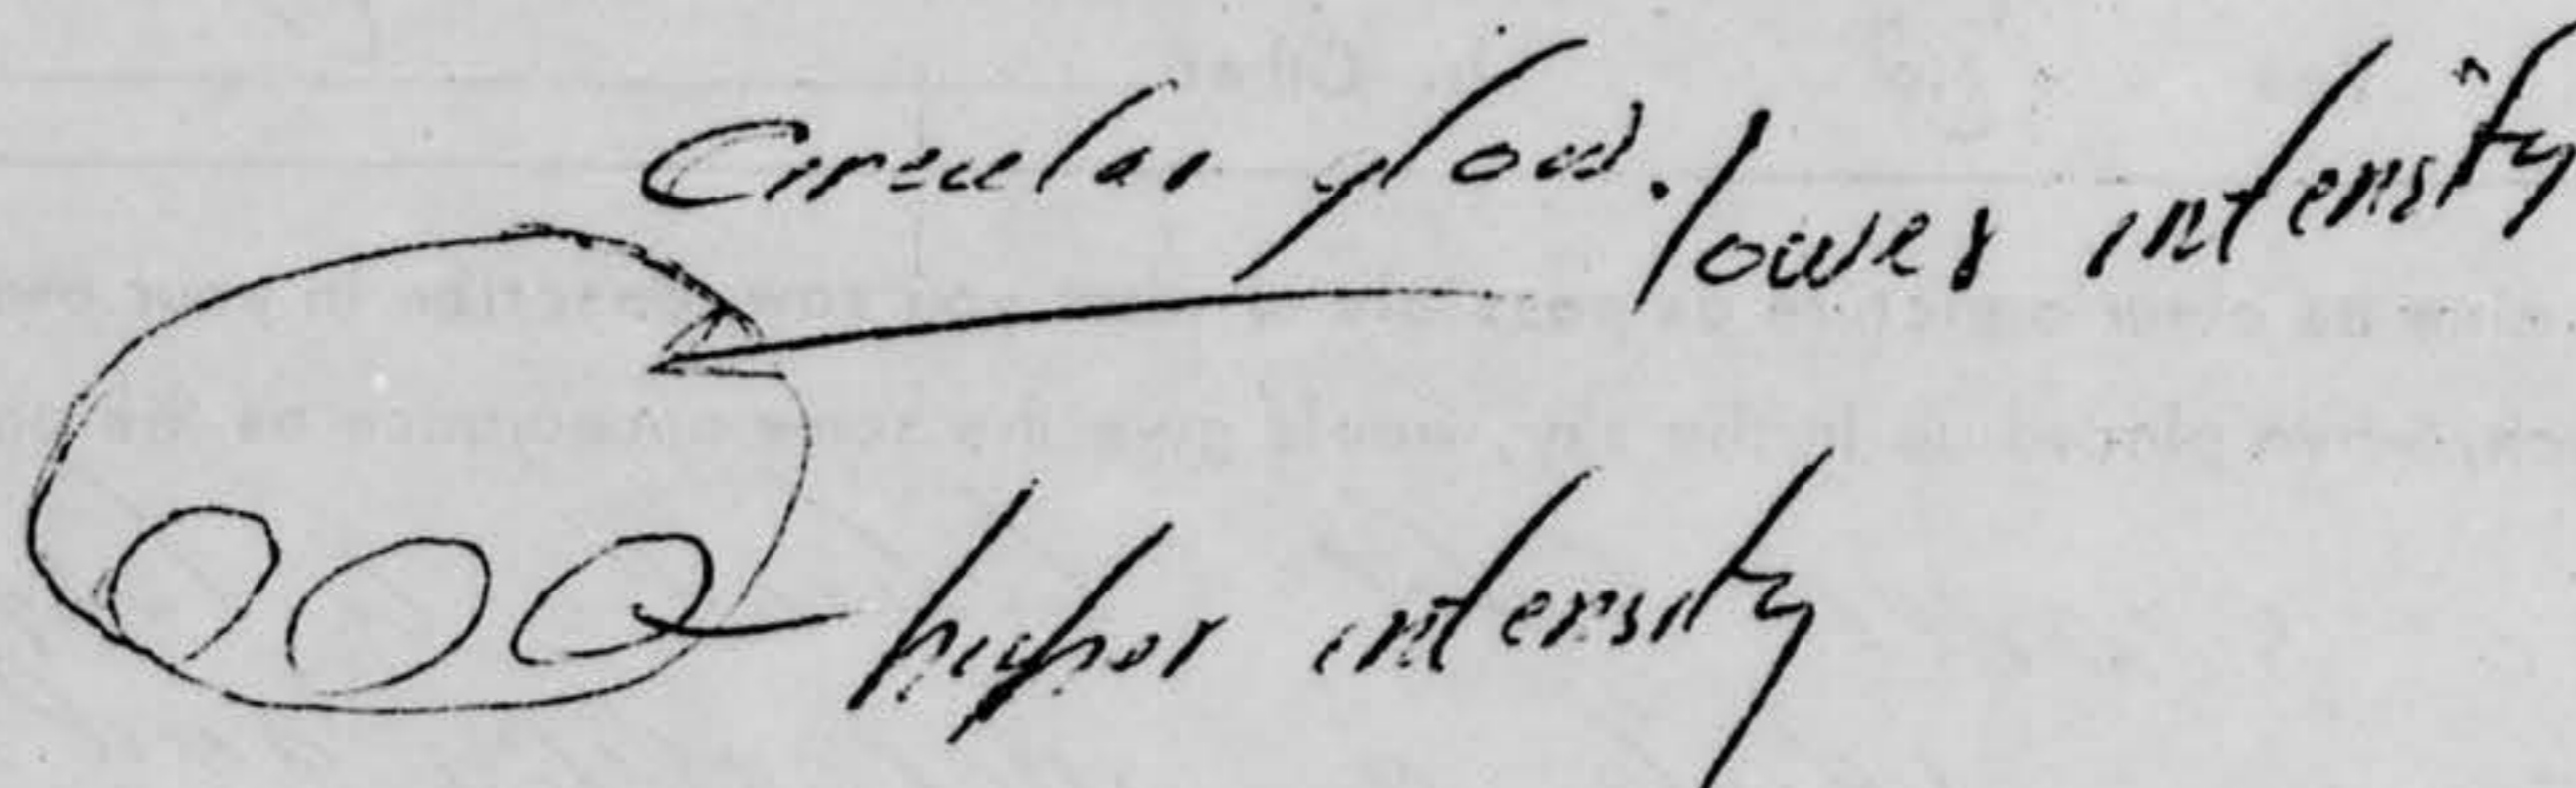 Circular glow. lower intensity
higher intensity